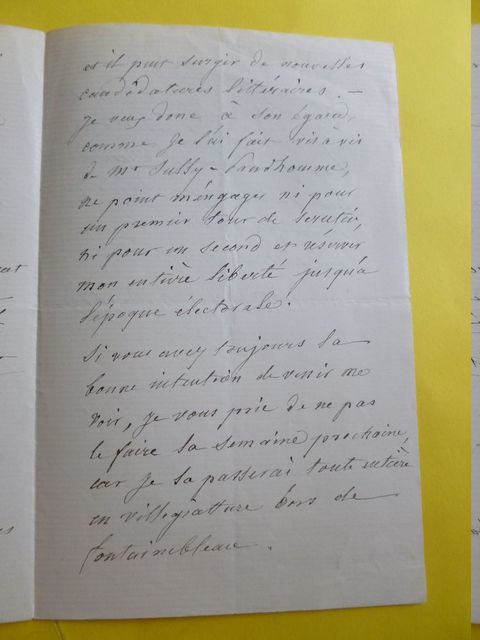 et il peut surgir de nouvelles
candidatures littéraires. —
je veux donc à son égard,
comme je l'ai fait vis à vis
de Mr Sully-Prudhomme,
ne point m'engager ni pour
un premier tour de scrutin,
ni pour un second et réserver
mon entière liberté jusqu'à
l'époque électorale.
Si vous avez toujours la
bonne intention de venir me
voir, je vous prie de ne pas
le faire la semaine prochaine,
car je la passerai toute entière
en villégiature hors de
fontainebleau.